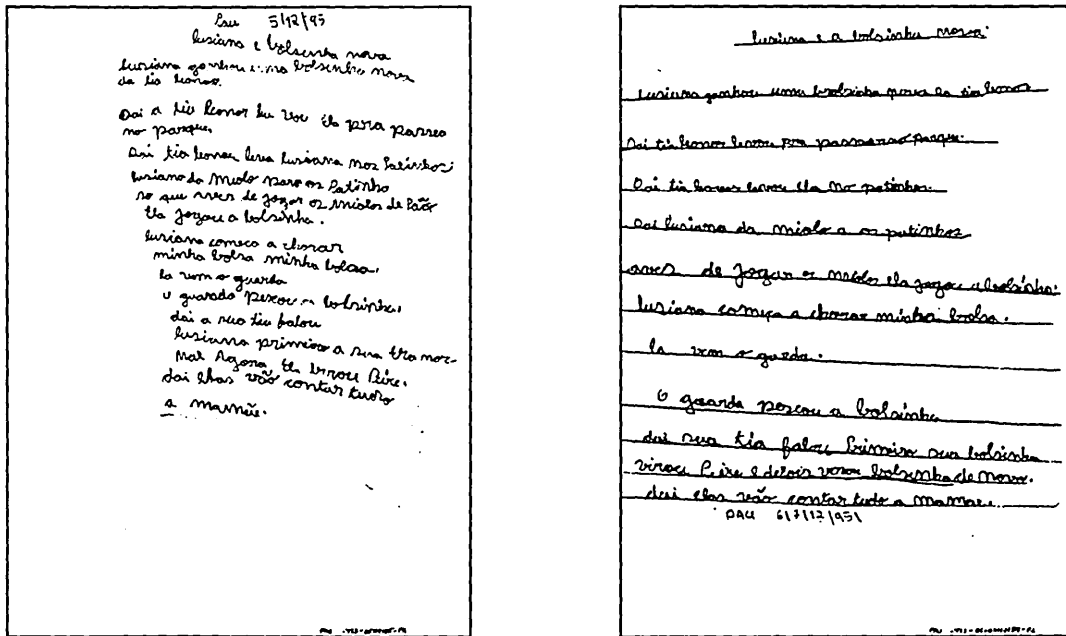 5/12/95
lusiana e bolsinha nova
lusiana ganhou uma bolsinha nova
da tia leonor.
Dai a tia leonor ela pra passea
no parque.
Dai tia leonor leva lusiana nos Patinhos
lusiana da miolo para os Patinho
so que nves de jogar os miolos de Pão
Ela jogou a bolsinha.
lusiana começo a chorar
minha bolsa minha bolsa.
la vem o guarda
o guarda pescou a bolsinha.
dai a sua tia falou
lusiana primeiro a sua Era nor-
mal Agora Ela virou Peixe.
dai Elas vão contar tudo
a mamãe.
lusiana e a bolsinha nova
lusiana ganhou uma bolsinha nova da tia leonor
Dai tia leonor levou pra passear no parque.
Dai tia levou Ela no patinhos.
Dai lusiana da miolo a os patinhos
nves de jogar o miolos ela jogou a bolsinha.
lusiana começa a chorar minha bolsa.
la vem o guarda.
O guarda pescou a bolsinha
dai sua tia falou Primeiro sua bolsinha
virou Peixe e depois virou bolsinha de novo.
dai elas vão contar tudo a mamãe.